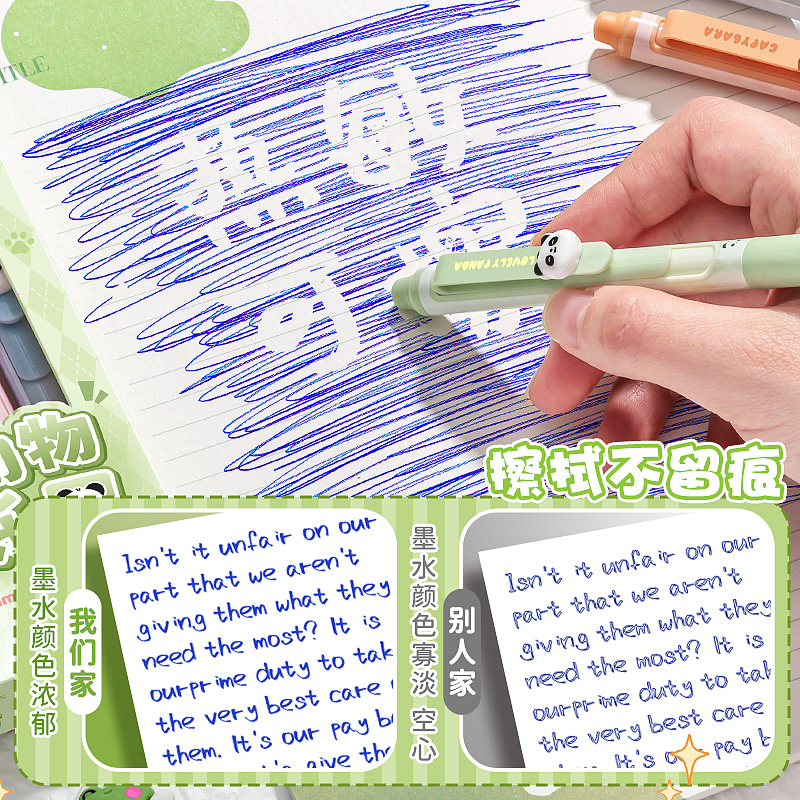 TLE
CAPYBARA
LOVELY PANDA
物
擦拭不留痕
墨水颜色浓郁
我们家
Isn't it unfair on our
part that we aren't
giving them what they
need the most? It is
ourprime duty to tak
the very best care
them. It's our pay b
give the
墨水颜色寡淡 空心
别人家
Isn't it unfair on our
part that we aren't
giving them what they
need the most? It is
ourprime duty to tak
the very best care
It's our pay b
give the